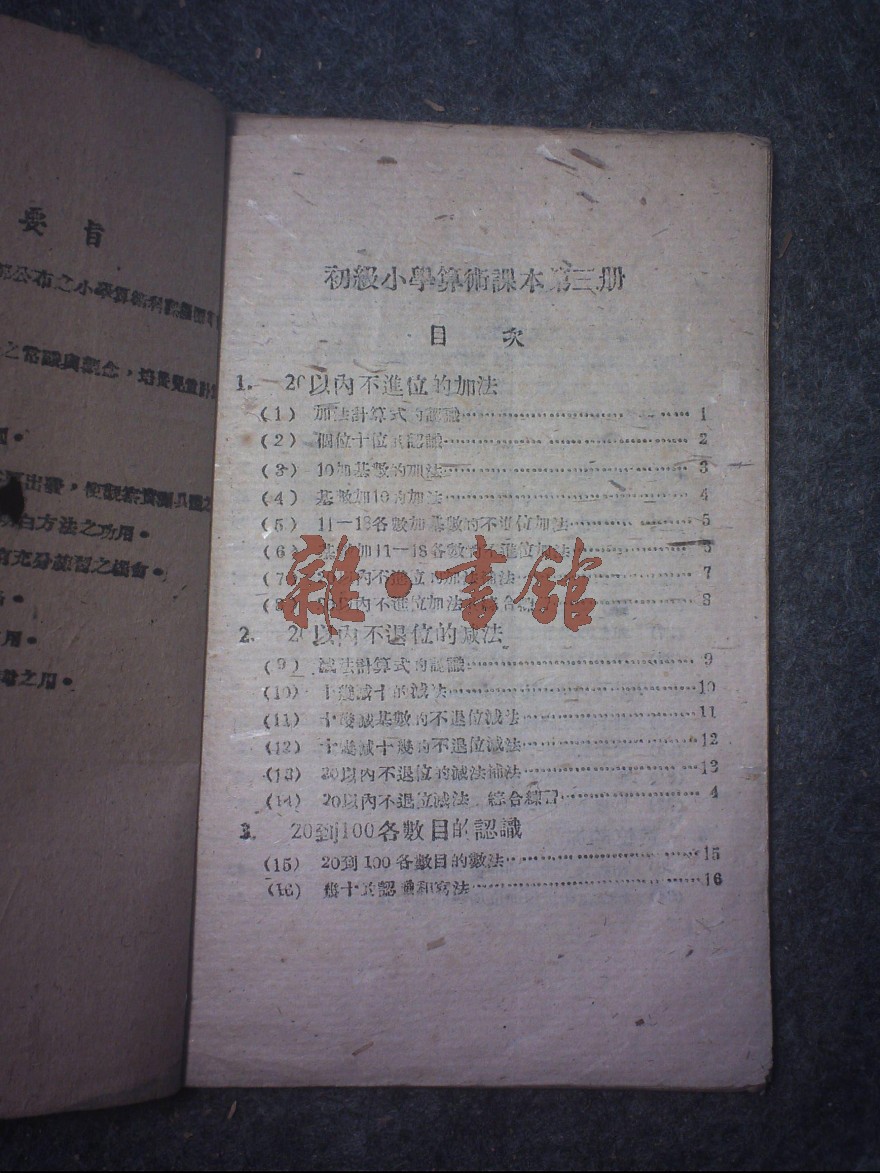 要旨
部公布之小學算術科課程
之常識與觀念,培養兒童計算
出發,使觀察實測具體之
白方法之功用。
有充分練習之機會。
用。
之用。
初級小學算術課本第三册
目 次
1. 20以內不進位的加法
(1) 加法計算式的認識 1
(2) 個位十位的認識 2
(3) 10加基數的加法 3
(4) 基數加10的加法 4
(5) 11—18各數加基數的不進位加法 5
(6) 基數加11—18各數的不進位加法 6
(7) 20以內不進位的加法補法 7
(8) 20以內不進位加法的綜合練習 8
雜·書館
2. 20以內不退位的減法
(9) 減法計算式的認識 9
(10) 十幾減十的減法 10
(11) 十幾減基數的不退位減法 11
(12) 十幾減十幾的不退位減法 12
(13) 20以內不退位的減法補法 13
(14) 20以內不退位減法 綜合練習 4
3. 20到100各數目的認識
(15) 20到100各數目的數法 15
(16) 幾十的認識和寫法 16